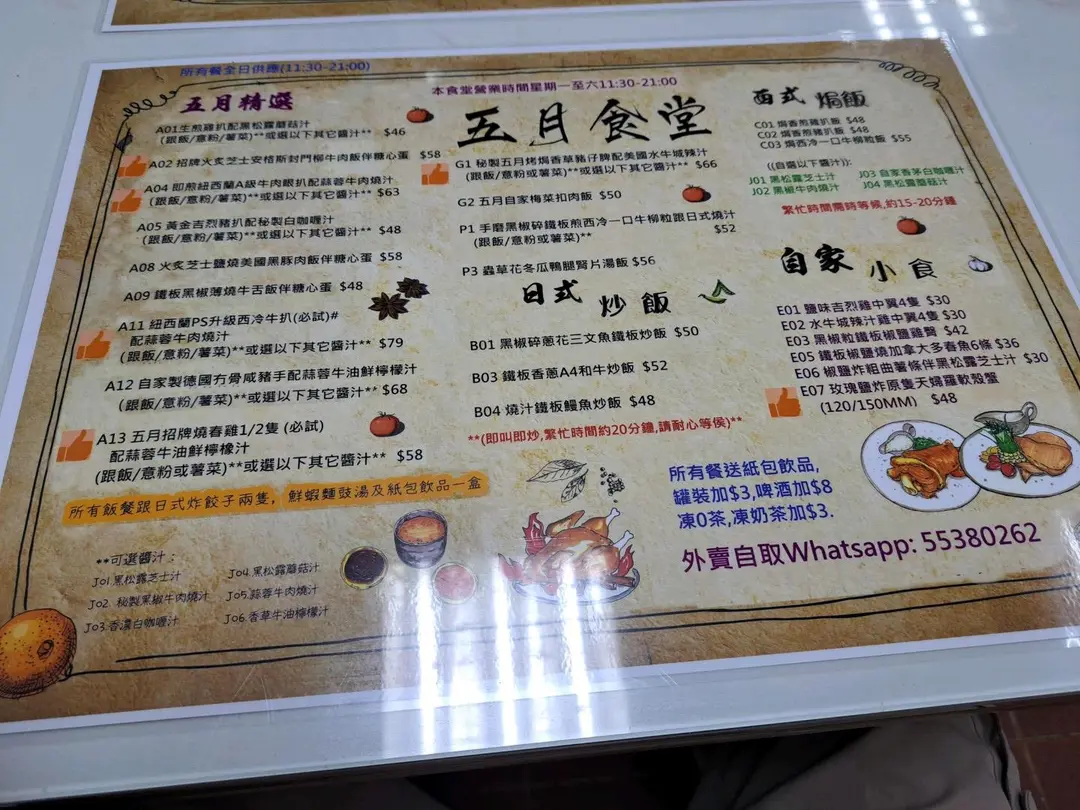 所有餐全日供應(11:30-21:00)
本食堂營業時間星期一至六11:30-21:00
五月食堂
五月精選
A01生煎雞扒配黑松露蘑菇汁
(跟飯/意粉/薯菜)**或選以下其它醬汁** $46
A02 招牌火炙芝士安格斯封門柳牛肉飯伴糖心蛋 $58
A04 即煎紐西蘭A級牛肉眼扒配蒜蓉牛肉燒汁
(跟飯/意粉/薯菜)**或選以下其它醬汁** $63
A05 黃金吉烈豬扒配秘製白咖喱汁
(跟飯/意粉/薯菜)**或選以下其它醬汁** $48
A08 火炙芝士鹽燒美國黑豚肉飯伴糖心蛋 $58
A09 鐵板黑椒薄燒牛舌飯伴糖心蛋 $48
A11 紐西蘭PS升級西冷牛扒(必試)#
配蒜蓉牛肉燒汁
(跟飯/意粉/薯菜)**或選以下其它醬汁** $79
A12 自家製德國冇骨咸豬手配蒜蓉牛油鮮檸檬汁
(跟飯/意粉或薯菜)**或選以下其它醬汁** $68
A13 五月招牌燒春雞1/2隻 (必試)
配蒜蓉牛油鮮檸檬汁
(跟飯/意粉或薯菜)**或選以下其它醬汁** $58
所有飯餐跟日式炸餃子兩隻, 鮮蝦麵豉湯及紙包飲品一盒
**可選醬汁：
J01 黑松露芝士汁
J02 秘製黑椒牛肉燒汁
J03 香濃白咖喱汁
J04 黑松露蘑菇汁
J05 蒜蓉牛肉燒汁
J06 香草牛油檸檬汁
G1 秘製五月烤焗香草豬仔脾配美國水牛城辣汁
(跟飯/意粉或薯菜)**或選以下其它醬汁** $66
G2 五月自家梅菜扣肉飯 $50
P1 手磨黑椒碎鐵板煎西冷一口牛柳粒跟日式燒汁
(跟飯/意粉或薯菜)** $52
P3 蟲草花冬瓜鴨腿腎片湯飯 $56
日式 炒飯
B01 黑椒碎蔥花三文魚鐵板炒飯 $50
B03 鐵板香蔥A4和牛炒飯 $52
B04 燒汁鐵板鰻魚炒飯 $48
**(即叫即炒,繁忙時間約20分鐘,請耐心等侯)**
西式 焗飯
C01 焗香煎雞扒飯 $48
C02 焗香煎豬扒飯 $48
C03 焗西冷一口牛柳粒飯 $55
((自選以下醬汁)):
J01 黑松露芝士汁 J03 自家香茅白咖喱汁
J02 黑椒牛肉燒汁 J04 黑松露蘑菇汁
繁忙時間需時等候,約15-20分鐘
自家 小食
E01 鹽味吉烈雞中翼4隻 $30
E02 水牛城辣汁雞中翼4隻 $30
E03 黑椒粒鐵板椒鹽雞腎 $42
E05 鐵板椒鹽燒加拿大多春魚6條 $36
E06 椒鹽炸粗曲薯條伴黑松露芝士汁 $30
E07 玫瑰鹽炸原隻天婦羅軟殼蟹
(120/150MM) $48
所有餐送紙包飲品,
罐裝加$3,啤酒加$8
凍0茶,凍奶茶加$3.
外賣自取Whatsapp: 55380262